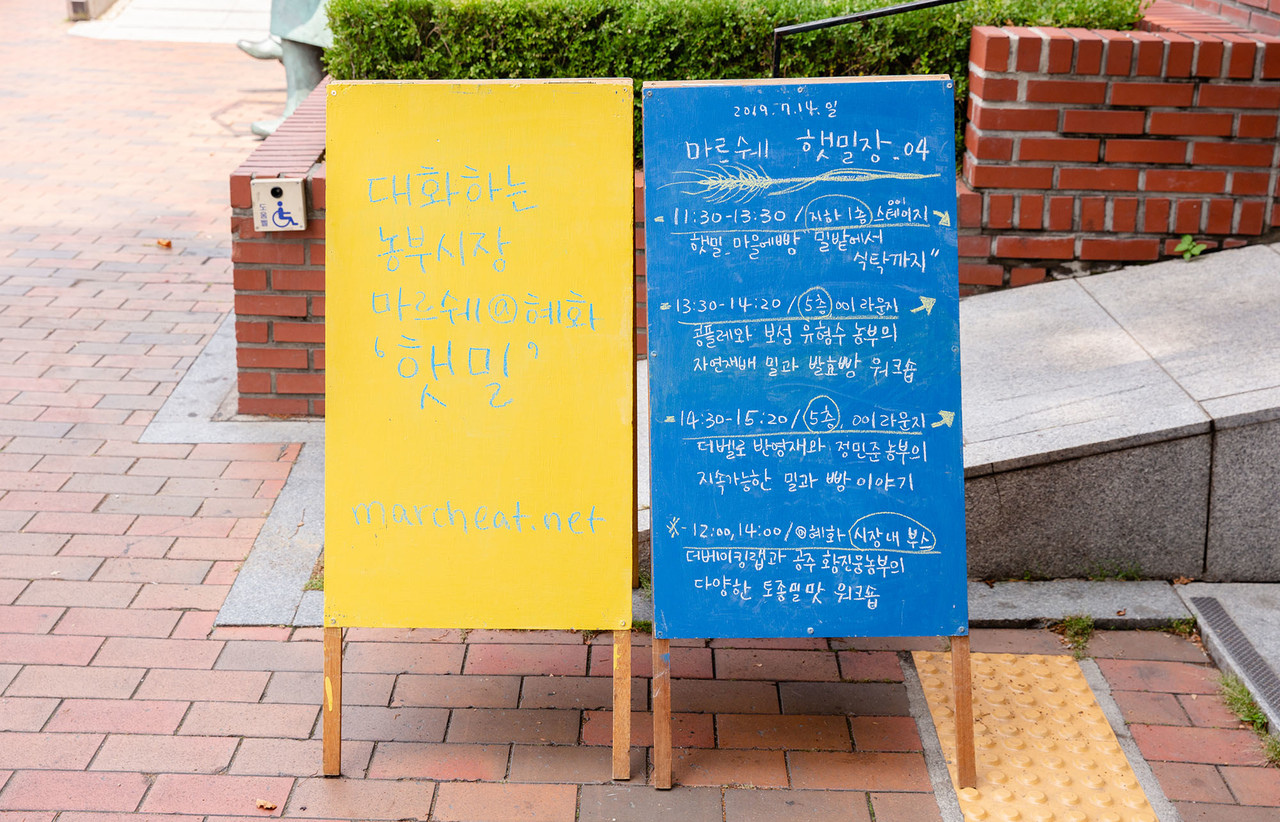 대화하는
농부시장
마르쉐@혜화
'햇밀'
marcheat.net
도움벨
2019.7.14.일
마르쉐 햇밀장_04
11:30-13:30 / 지하 1층 001스테이지
햇밀_마을에빵 "밀밭에서
식탁까지"
13:30-14:20 / 5층 001라운지
콩플레와 보성 유형수 농부의
자연재배 밀과 발효빵 워크숍
14:30-15:20 / 5층, 001라운지
더벨로 반영재와 정민준농부의
지속가능한 밀과 빵 이야기
※ - 12:00, 14:00 / @혜화 시장 내 부스
더베이킹랩과 공주 황진웅농부의
다양한 토종밀맛 워크숍